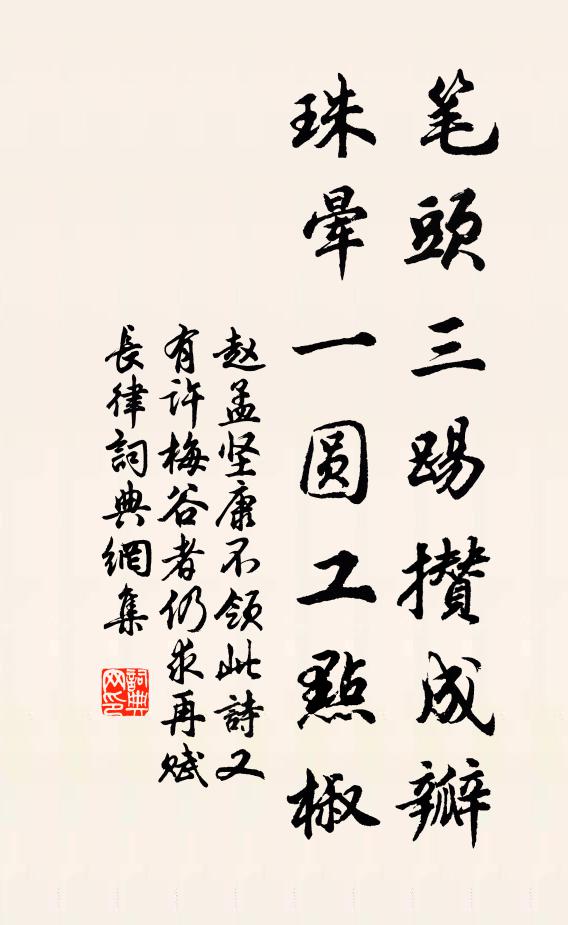 笔頭三踢攢成瓣
珠暈一圆工點椒
赵孟坚康不领此詩又
有许梅谷者仍求再赋
長律詞典網集
詞典
网印